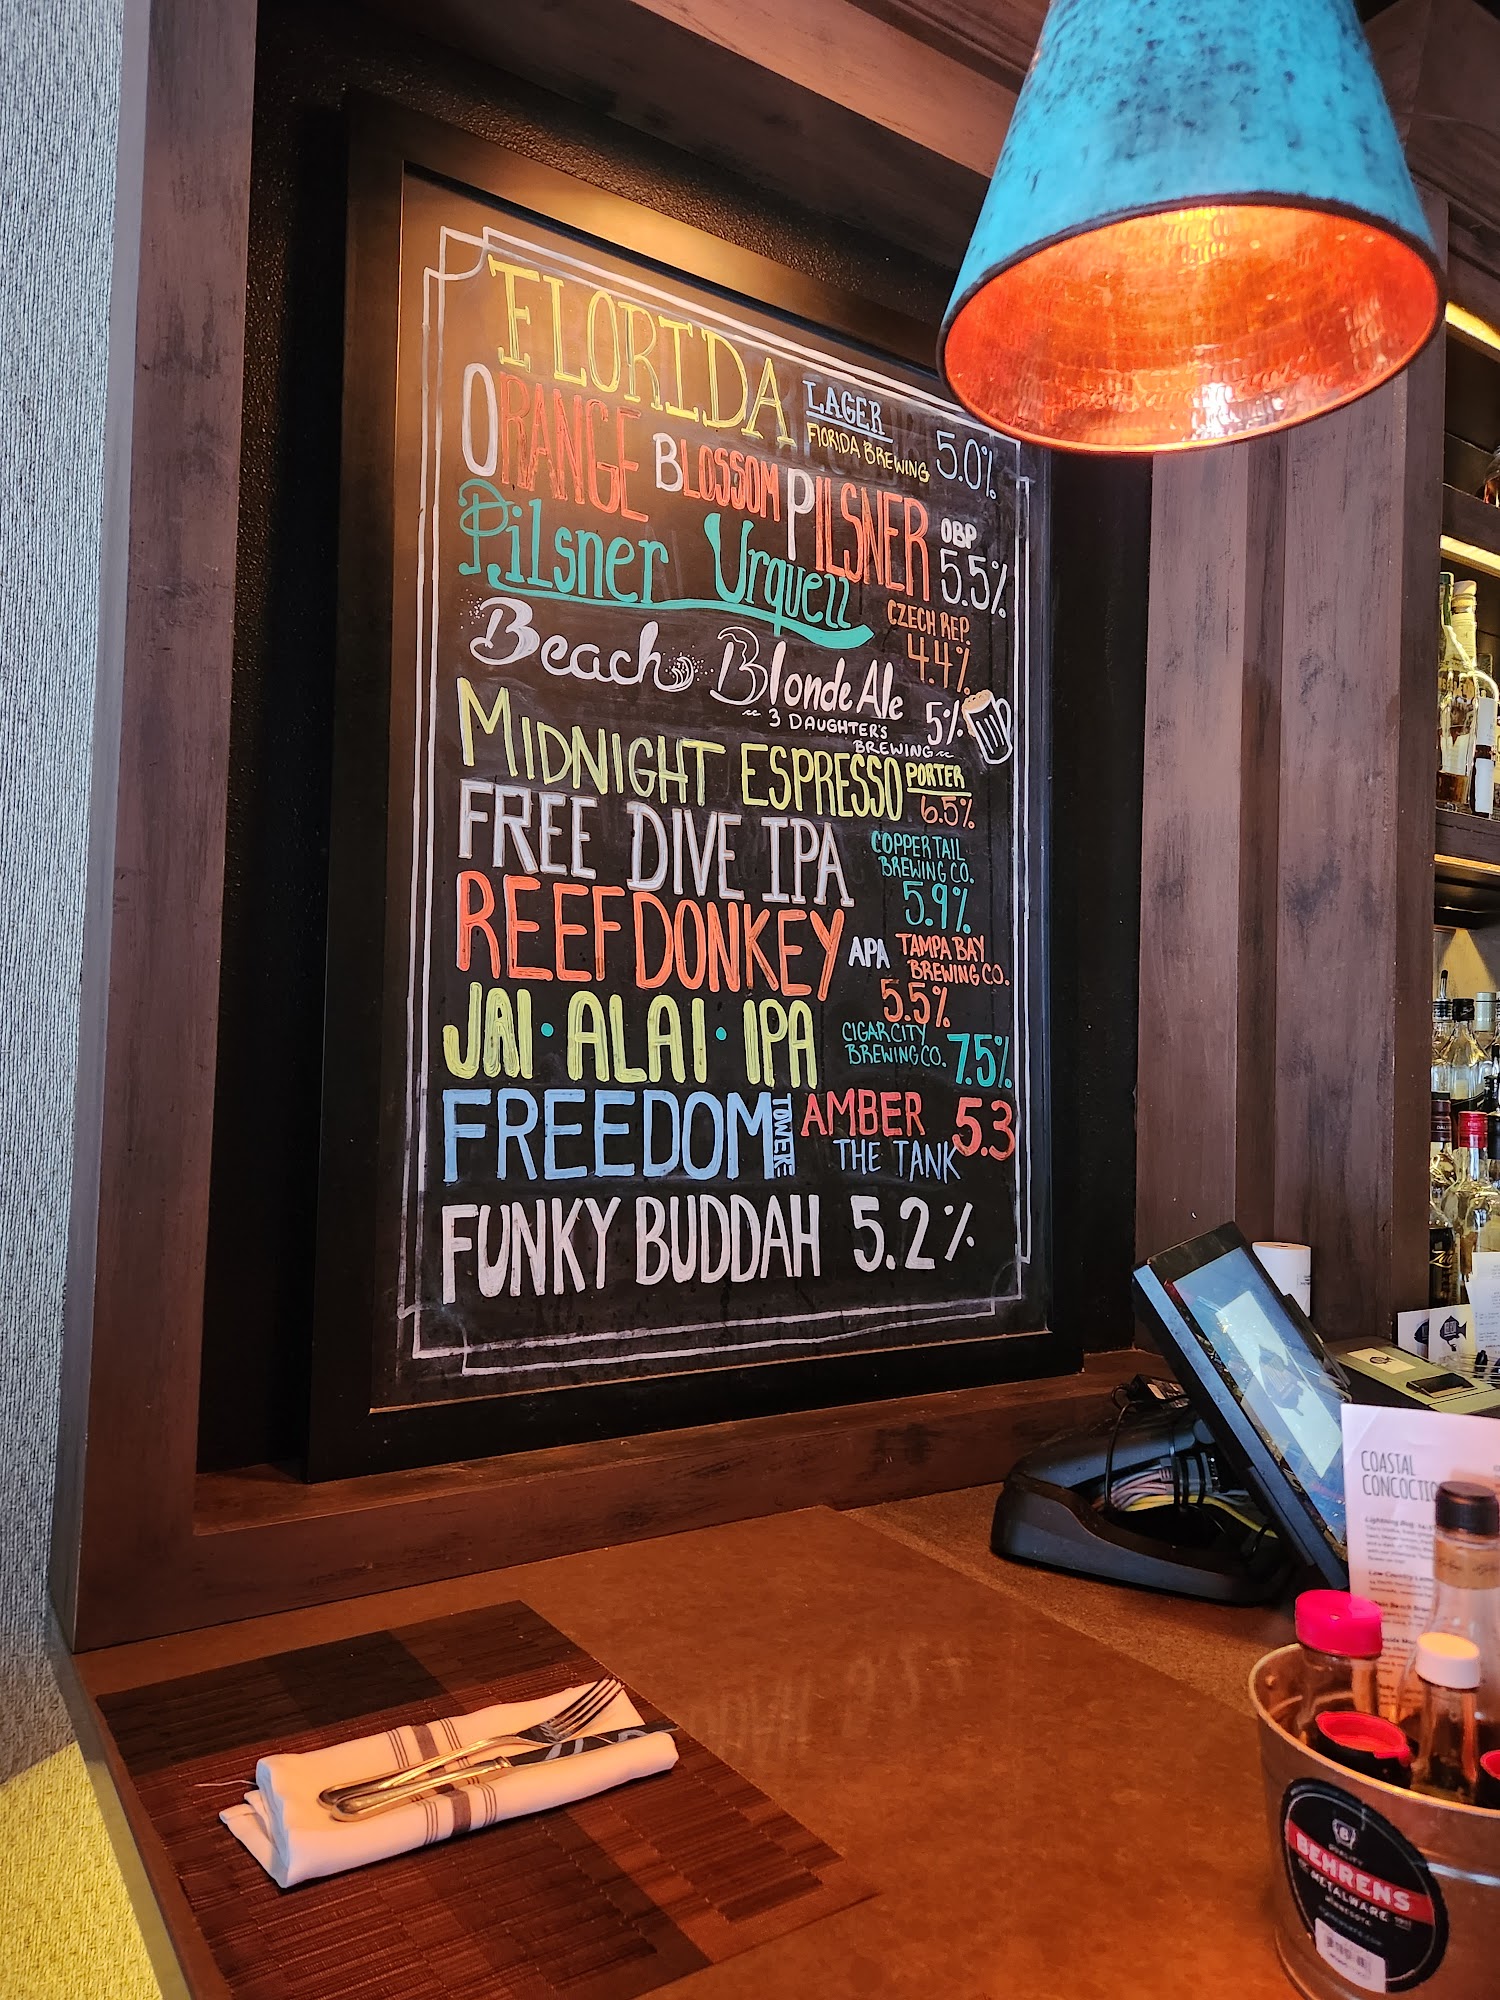 FLORIDA LAGER
FLORIDA BREWING 5.0%
ORANGE BLOSSOM PILSNER OBP
5.5%
Pilsner Urquell CZECH REP.
4.4%
Beach Blonde Ale 5%
~ 3 DAUGHTER'S
BREWING ~
MIDNIGHT ESPRESSO PORTER
6.5%
FREE DIVE IPA COPPERTAIL
BREWING CO.
5.9%
REEF DONKEY APA TAMPA BAY
BREWING CO.
5.5%
JAI · ALAI · IPA CIGAR CITY
BREWING CO. 7.5%
FREEDOM TOWER AMBER 5.3
THE TANK
FUNKY BUDDAH 5.2%
COASTAL
BEHRENS
METALWARE